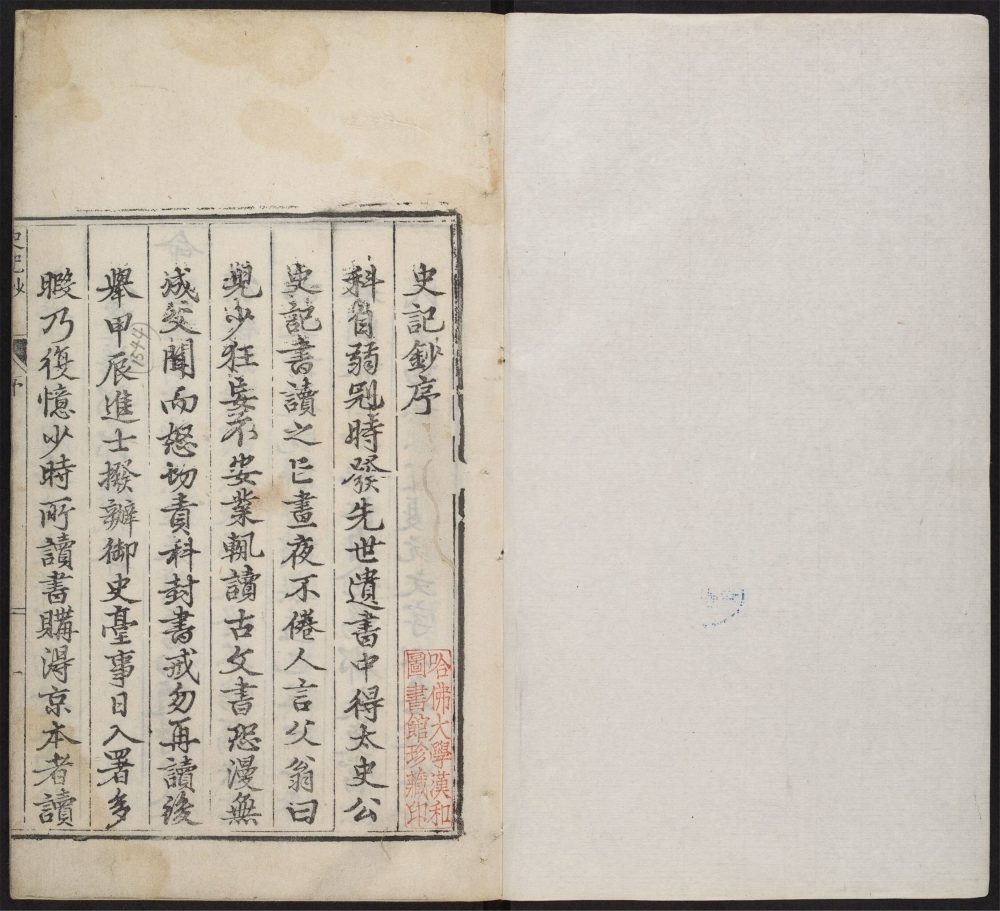 史記鈔序
科自弱冠時發先世遺書中得太史公
史記書讀之已晝夜不倦人言父翁曰
兒少狂妄不安業輒讀古文書恐漫無
成父聞而怒切責科封書戒勿再讀後
舉甲辰進士撥辦御史臺事日入署多
暇乃復憶少時所讀書購得京本者讀
1544
史記鈔
序
一
哈佛大學漢和
圖書館珍藏印